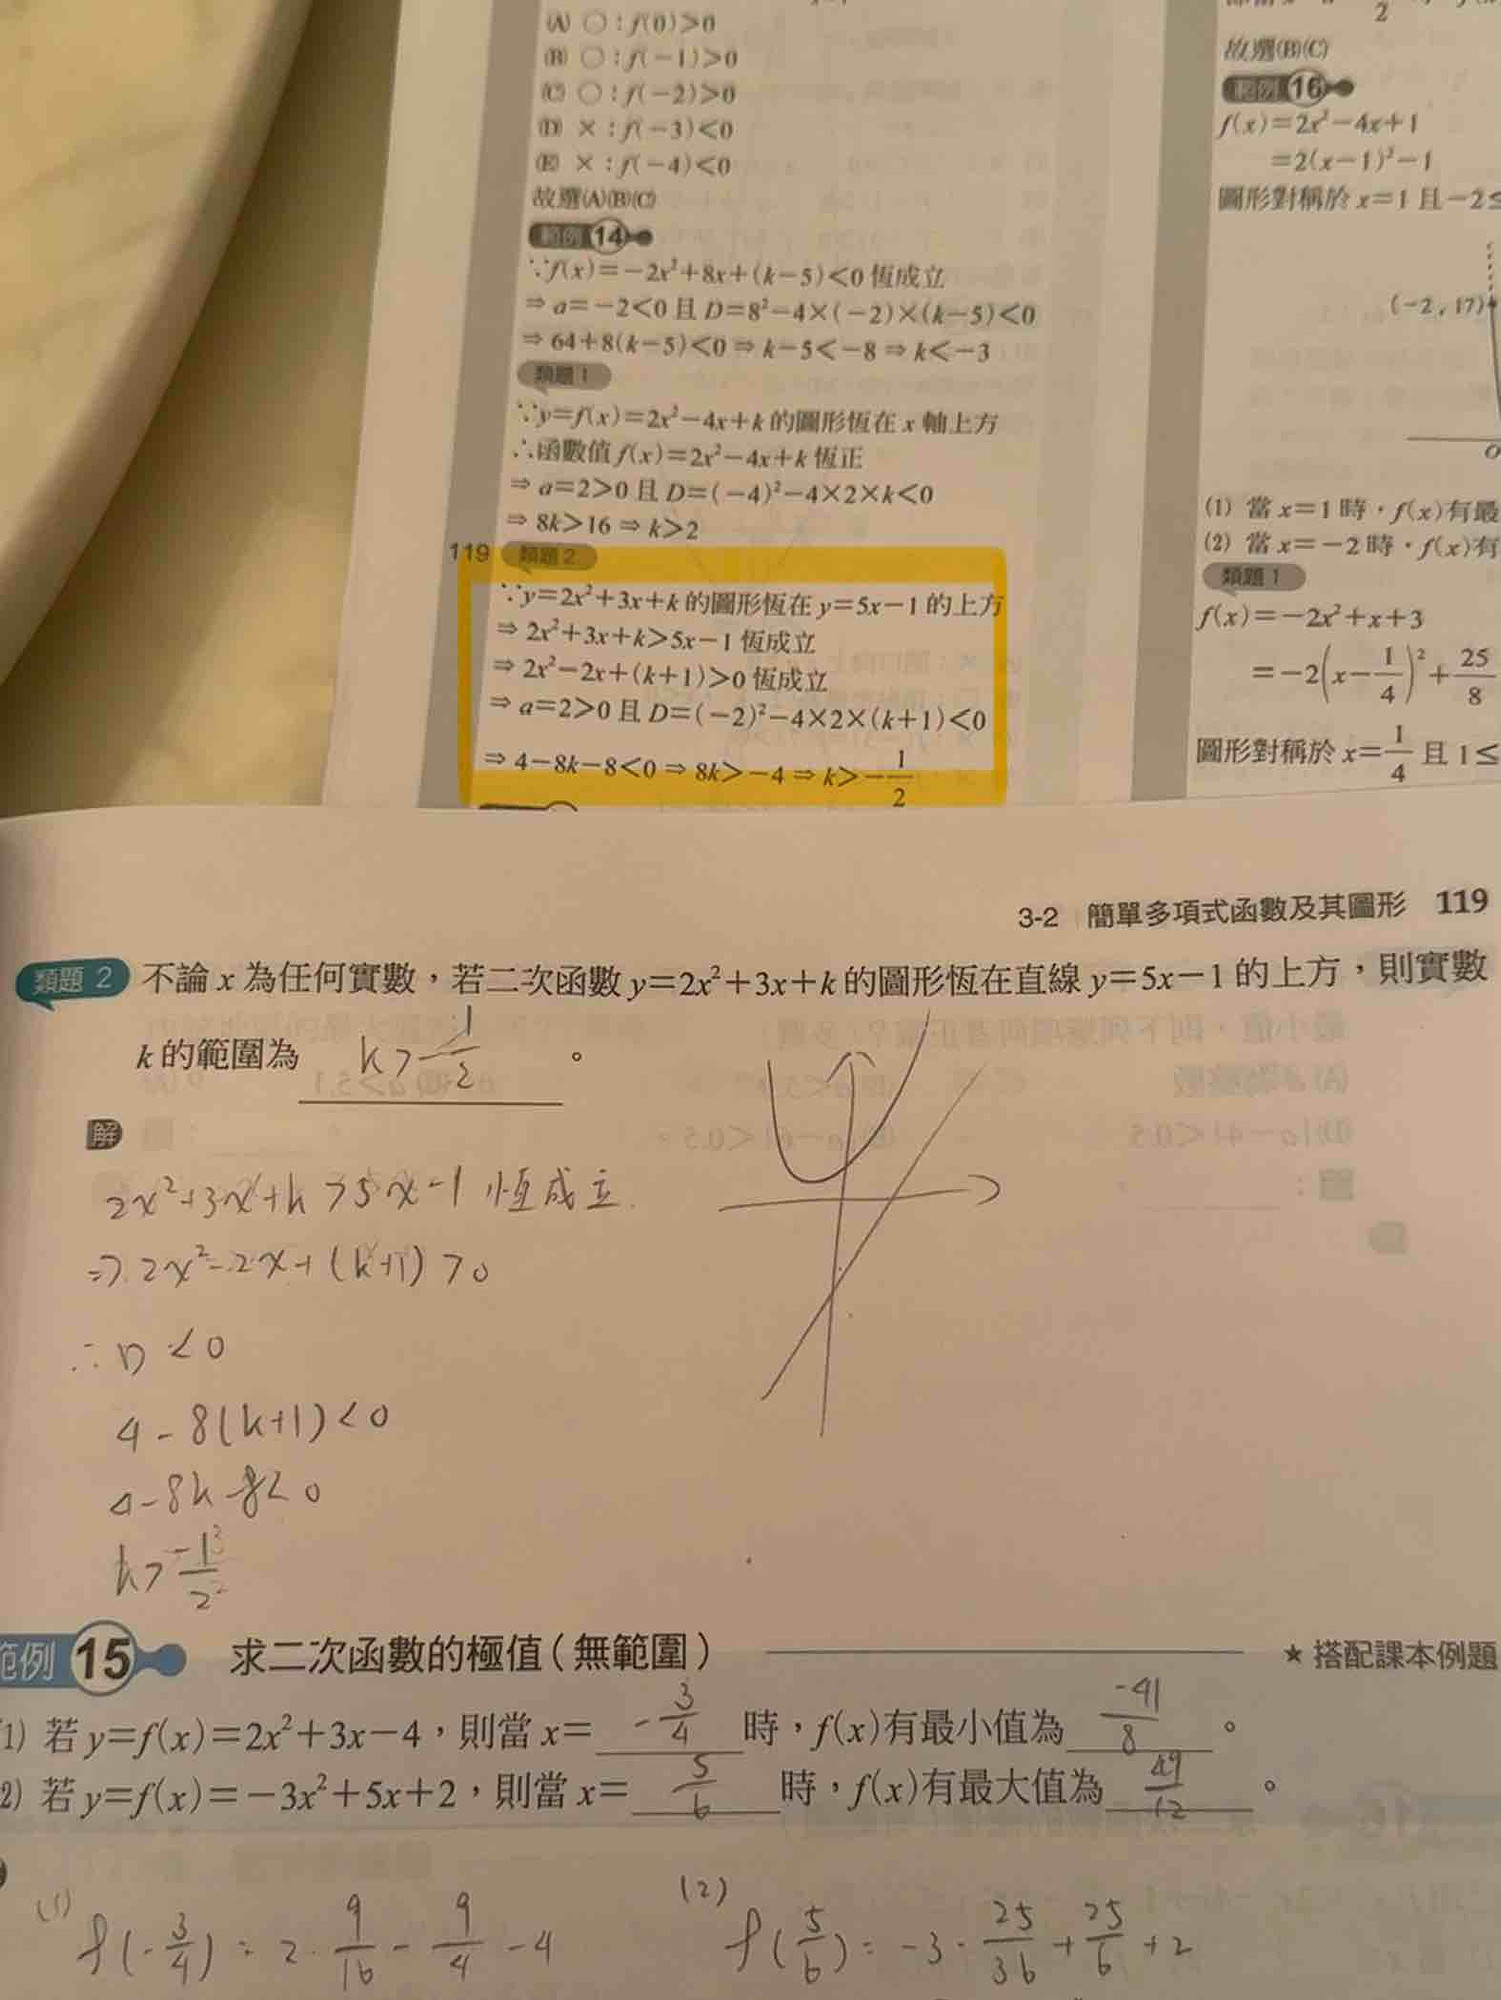 (A) ○：f(0)>0
(B) ○：f(−1)>0
(C) ○：f(−2)>0
(D) ×：f(−3)<0
(E) ×：f(−4)<0
故選(A)(B)(C)
範例 14
∵f(x)=−2x²+8x+(k−5)<0 恆成立
⇒ a=−2<0 且 D=8²−4×(−2)×(k−5)<0
⇒ 64+8(k−5)<0 ⇒ k−5<−8 ⇒ k<−3
類題 1
∵y=f(x)=2x²−4x+k 的圖形恆在 x 軸上方
∴函數值 f(x)=2x²−4x+k 恆正
⇒ a=2>0 且 D=(−4)²−4×2×k<0
⇒ 8k>16 ⇒ k>2
119 類題 2
∵y=2x²+3x+k 的圖形恆在 y=5x−1 的上方
⇒ 2x²+3x+k>5x−1 恆成立
⇒ 2x²−2x+(k+1)>0 恆成立
⇒ a=2>0 且 D=(−2)²−4×2×(k+1)<0
⇒ 4−8k−8<0 ⇒ 8k>−4 ⇒ k>−1/2
故選(B)(C)
範例 16
f(x)=2x²−4x+1
=2(x−1)²−1
圖形對稱於 x=1 且 −2≤
(−2，17)
O
(1) 當 x=1 時，f(x)有最
(2) 當 x=−2 時，f(x)有
類題 1
f(x)=−2x²+x+3
=−2(x−1/4)²+25/8
圖形對稱於 x=1/4 且 1≤
3-2 簡單多項式函數及其圖形 119
類題 2 不論 x 為任何實數，若二次函數 y=2x²+3x+k 的圖形恆在直線 y=5x−1 的上方，則實數
k 的範圍為 k>-1/2 。
解
2x²+3x+k>5x-1 恆成立.
⇒ 2x²-2x+(k+1)>0
∴D<0
4-8(k+1)<0
4-8k-8<0
k>-1/2
範例 15 求二次函數的極值（無範圍） ★搭配課本例題
1) 若 y=f(x)=2x²+3x−4，則當 x= -3/4 時，f(x)有最小值為 -41/8 。
2) 若 y=f(x)=−3x²+5x+2，則當 x= 5/6 時，f(x)有最大值為 49/12 。
(1) f(-3/4)=2·9/16-9/4-4
(2) f(5/6)=-3·25/36+25/6+2